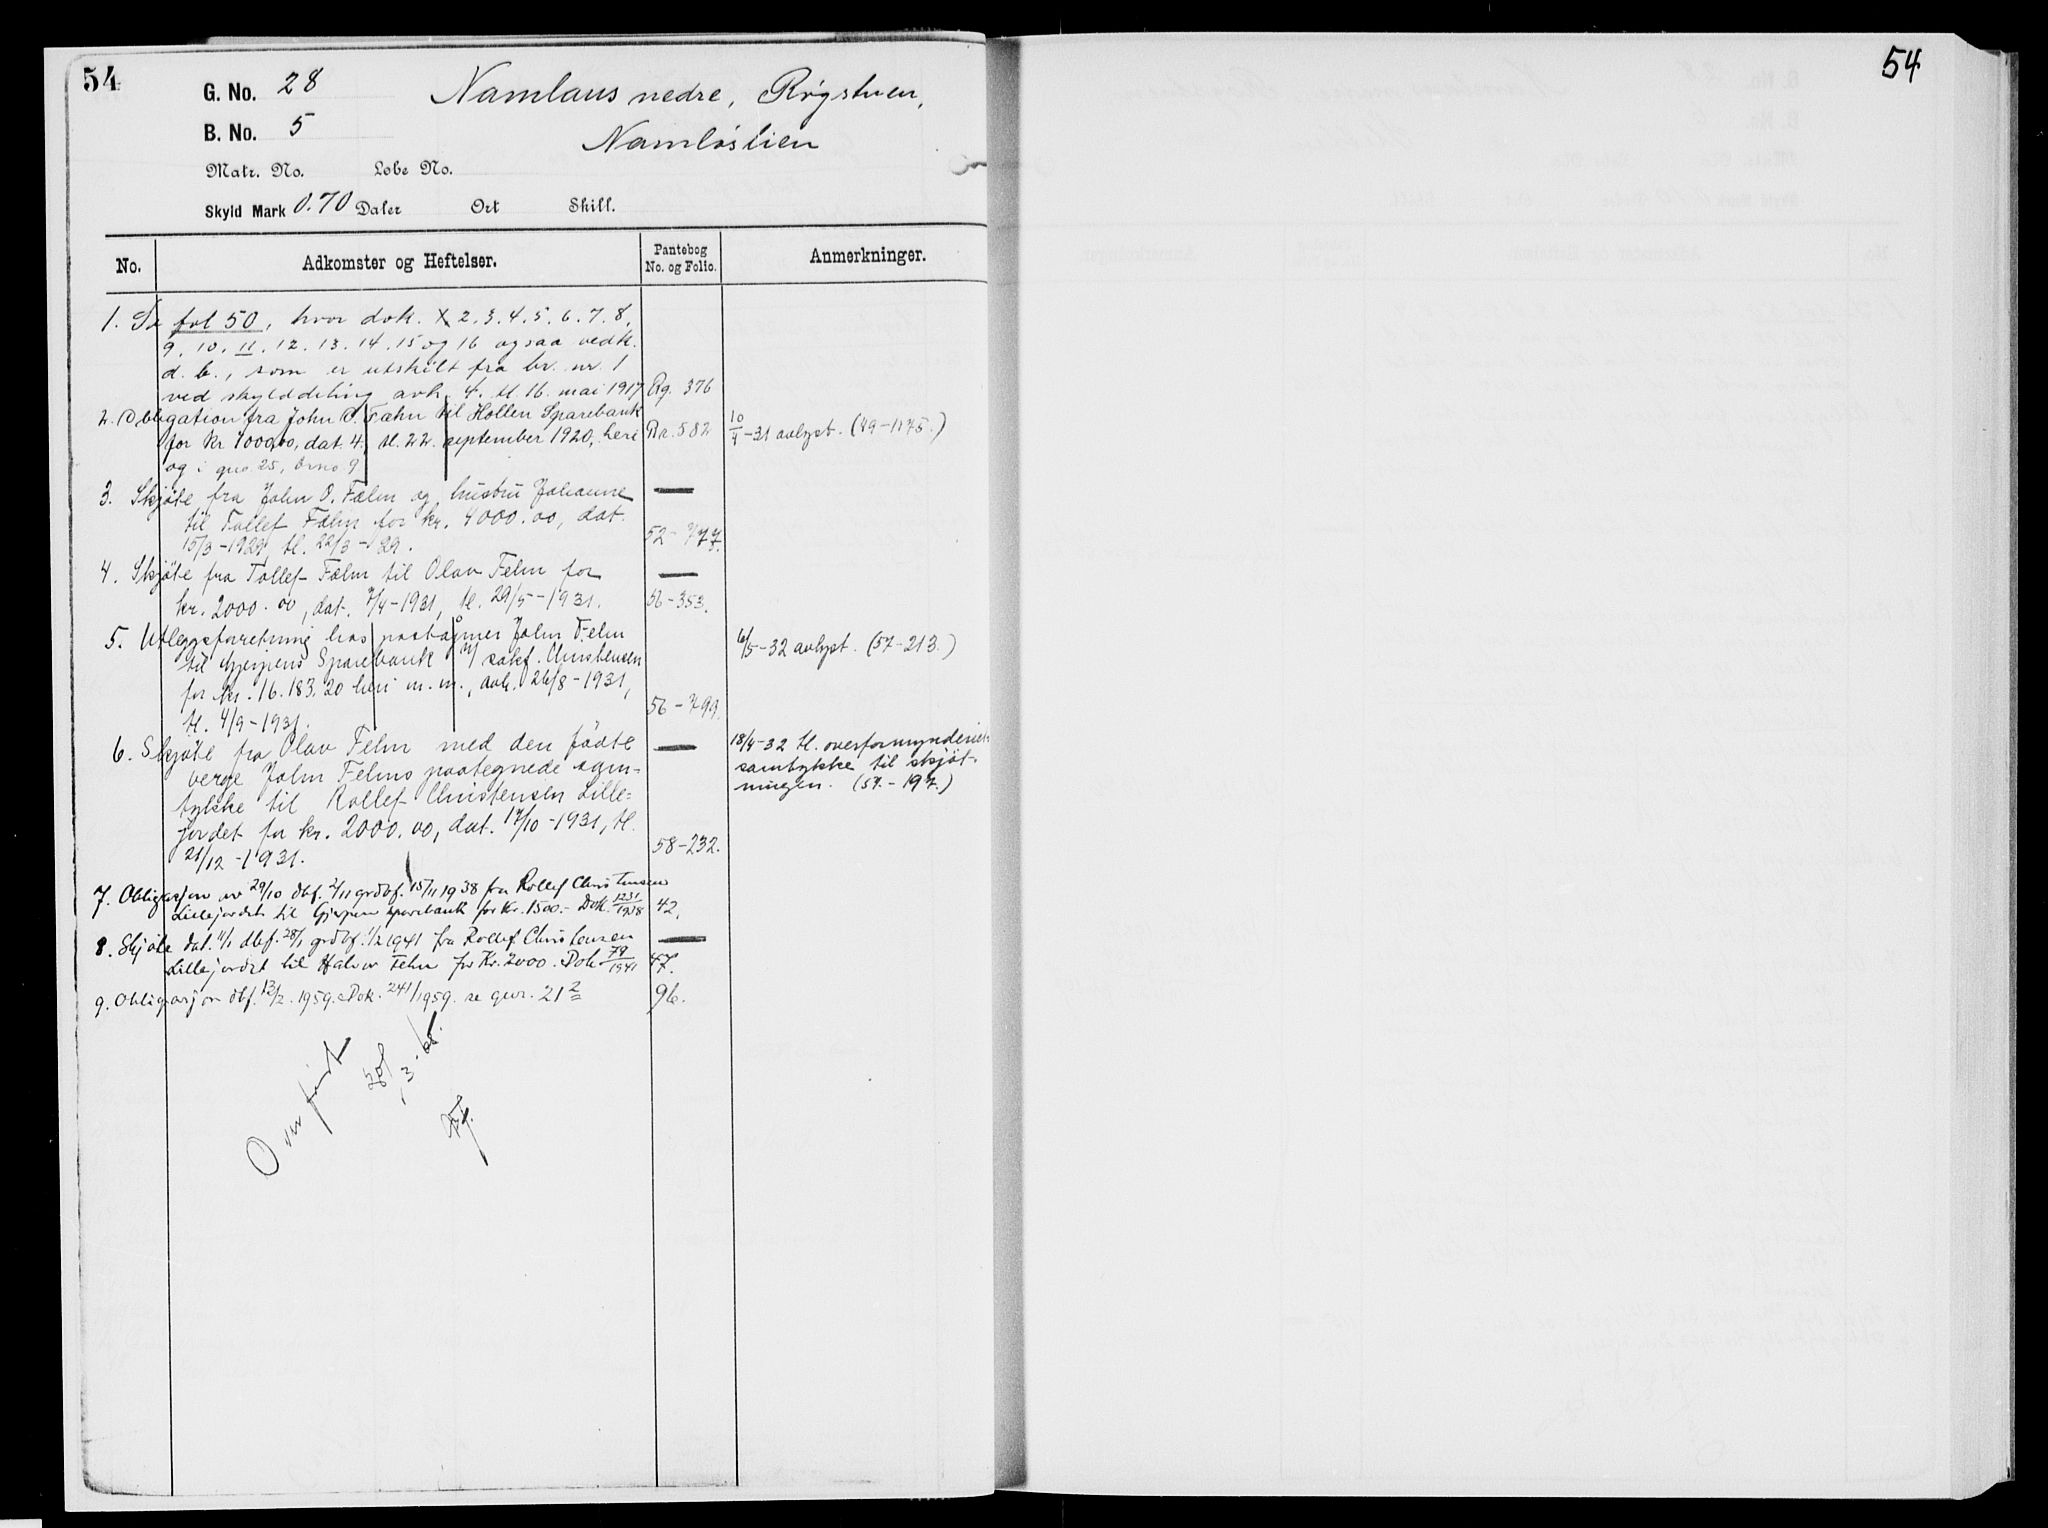 54
G. No. 28 Namlaus nedre, Røgstuen,
B. No. 5 Namløslien
Matr. No. Løbe No.
Skyld Mark 0.70 Daler Ort Skill.
No. Adkomster og Heftelser. Pantebog No. og Folio. Anmerkninger.
1. Se fol 50, hvor dok. 2. 3. 4. 5. 6. 7. 8,
9. 10. 11. 12. 13. 14. 15 og 16 ogsaa vedk.
d. b., som er utskilt fra br. nr. 1
ved skylddeling avh. 4. tl. 16. mai 1917 376
2. Obligation fra John O. Fæhn til Hollen Sparebank
for kr. 4000,00, dat. 4. tl. 22. september 1920, heri 582 10/4-31 avlyst. (49-1175.)
og i gno 25, brno 9
3. Skjöte fra John O. Fælm og hustru Johanne
til Tollef Fælm for kr. 4000.00, dat.
15/3-1929, tl. 22/3-29. 52-477.
4. Skjöte fra Tollef Fælm til Olav Felm for
kr. 2000.00, dat. 7/4-1931, tl. 29/5-1931. 56-353.
5. Utlegsforretning hos John Felm 6/5-32 avlyst. (57-213.)
til Gjerpens Sparebank v/ sakf. Christensen
for kr. 16.183.20 heri m.m., avh. 26/8-1931,
tl. 4/9-1931. 56-799.
6. Skjöte fra Olav Felm med den födte 18/4-32 tl. overformynderiets
verge John Felms paategnede sam- samtykke til skjöt-
tykke til Rollef Christensen Lille- ningen. (57.-197.)
jordet for kr. 2000.00, dat. 17/10-1931, tl.
21/12-1931. 58-232.
7. Obligasjon av 29/10 dbf. 2/11 grdbf. 15/11 1938 fra Rollef Christensen
Lillejordet til Gjerpen sparebank for Kr. 1500.- Dok. 1231/1938 42.
8. Skjöte dat. 11/1 dbf. 28/1 grdbf. 1/2 1941 fra Rollef Christensen
Lillejordet til Halvor Felm for Kr. 2000. Dok 79/1941 47.
9. Obligasjon dbf. 12/2. 1959. Dok. 241/1959. se gnr. 21 2 96.
Overført
54